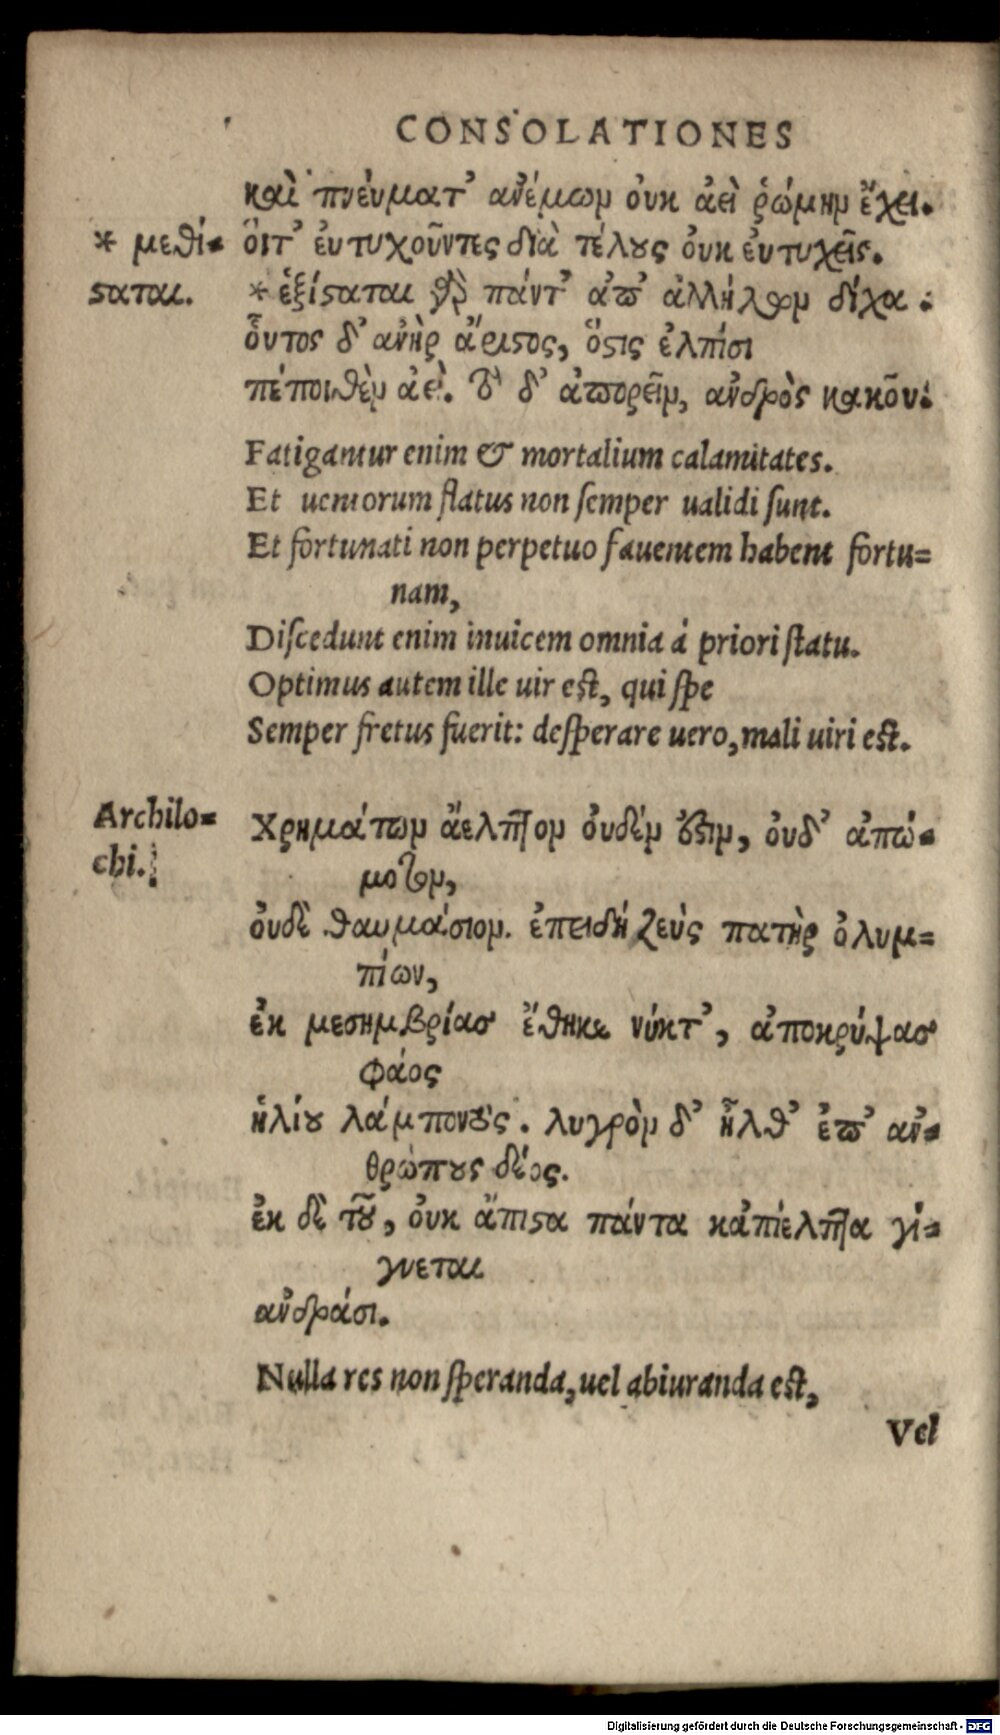 CONSOLATIONES
καὶ πνέυματ' ανέμων ὀυκ ἀεὶ ῥώμην ἔχει.
* μεθί-
ὅιτ' ἐυτυχοῦντες διὰ τέλους ὀυκ ἐυτυχεῖς.
σαται.
* ἐξίσταται γὰρ πάντ' ἀπ' ἀλλήλων δίχα.
ὅυτος δ' ανὴρ ἄριστος, ὅστις ἐλπίσι
πέποιθεν ἀεί. τὸ δ' ἀπορεῖν, ανδρὸς κακοῦ.
Fatigantur enim & mortalium calamitates.
Et uentorum flatus non ſemper ualidi ſunt.
Et fortunati non perpetuo fauentem habent fortu=
nam,
Diſcedunt enim inuicem omnia á priori ſtatu.
Optimus autem ille uir eſt, qui ſpe
Semper fretus fuerit: deſperare uero, mali uiri eſt.
Archilo=
chi.
Χρημάτων ἄελπτον ὀυδέν ἔστιν, ὀυδ' ἀπώ-
μοτον,
ὀυδὲ θαυμάσιον. ἐπειδή ζεὺς πατὴρ ὀλυμ=
πίων,
ἐκ μεσημβρίας ἔθηκε νύκτ', ἀποκρύψας
φάος
ἡλίου λάμποντος. λυγρὸν δ' ἦλθ' ἐπ' αν-
θρώπους δέος.
ἐκ δὲ τοῦ, ὀυκ ἄπιστα πάντα κἀπίελπτα γί-
γνεται
ανδράσι.
Nulla res non ſperanda, uel abiuranda eſt,
Vel
Digitalisierung gefördert durch die Deutsche Forschungsgemeinschaft - DFG